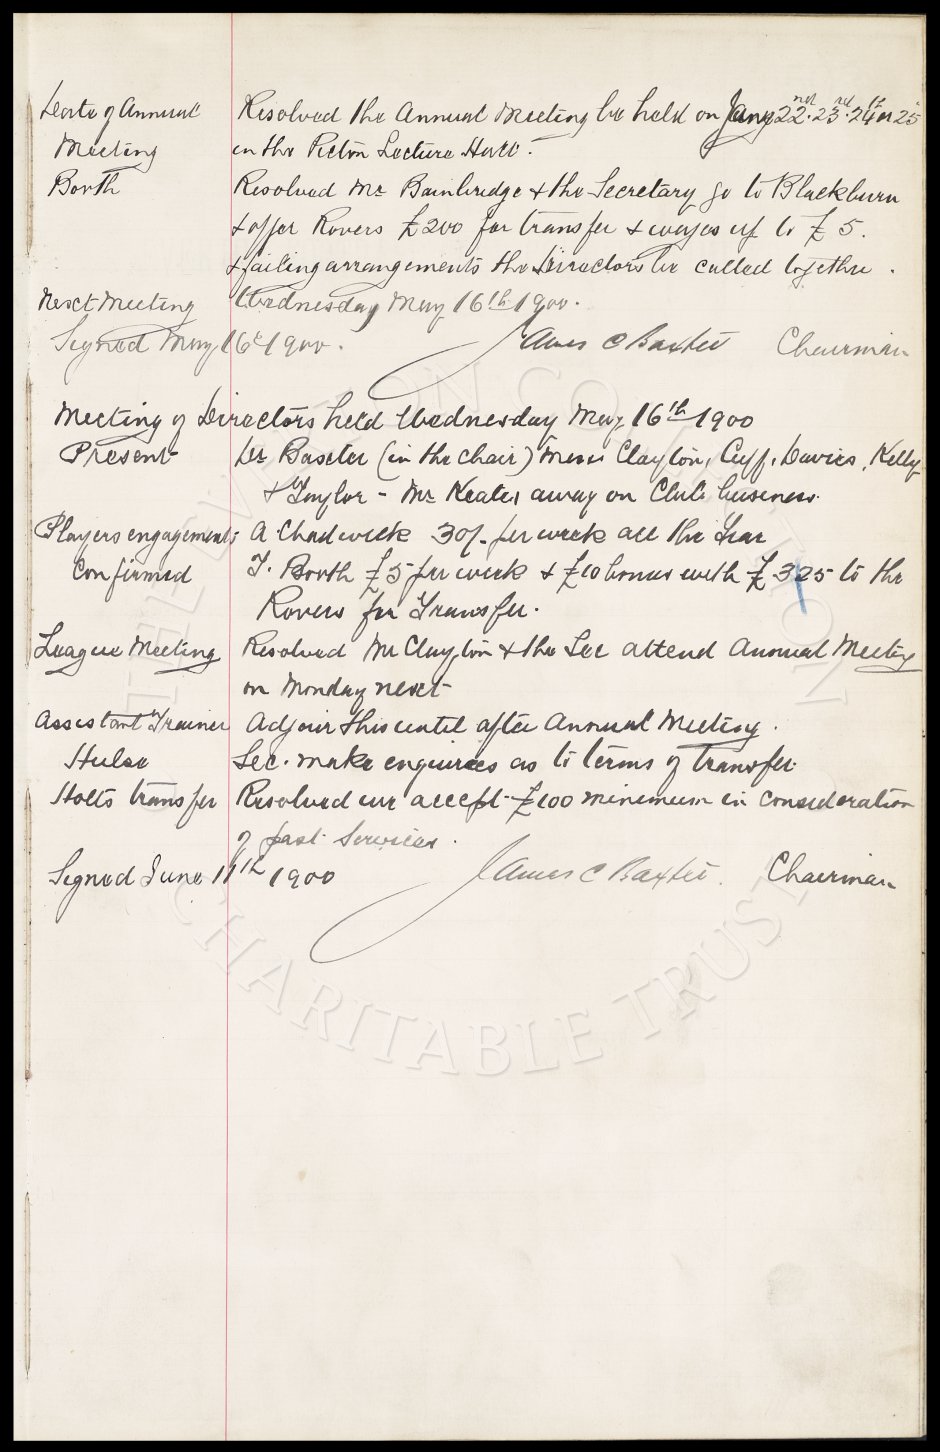 Date of Annual Resolved the Annual Meeting be held on 22nd. 23rd. 24th or 25
Meeting in the Picton Lecture Hall.
Booth Resolved Mr Bainbridge & the Secretary go to Blackburn
& offer Rovers £200 for transfer & wages up to £5.
& failing arrangements the Directors be called together.
Next Meeting Wednesday May 16th 1900.
Signed May 16th 1900. James C Baxter Chairman
Meeting of Directors held Wednesday May 16th 1900
Present Dr Baxter (in the chair) Messrs Clayton, Cuff, Davies, Kelly
& Taylor - Mr Keates away on Club business.
Players engagements A Chadwick 30/- per week all the Year
Confirmed T. Booth £5 per week & £10 bonus with £325 to the
Rovers for Transfer.
League Meeting Resolved Mr Clayton & the Sec attend Annual Meeting
on Monday next
Assistant Trainer Adjoin this until after Annual Meeting.
Hulse Sec. make enquiries as to terms of transfer.
Holts transfer Resolved we accept £100 minimum in consideration
of past services.
Signed June 11th 1900 James C Baxter. Chairman
THE EVERTON COLLECTION
CHARITABLE TRUST